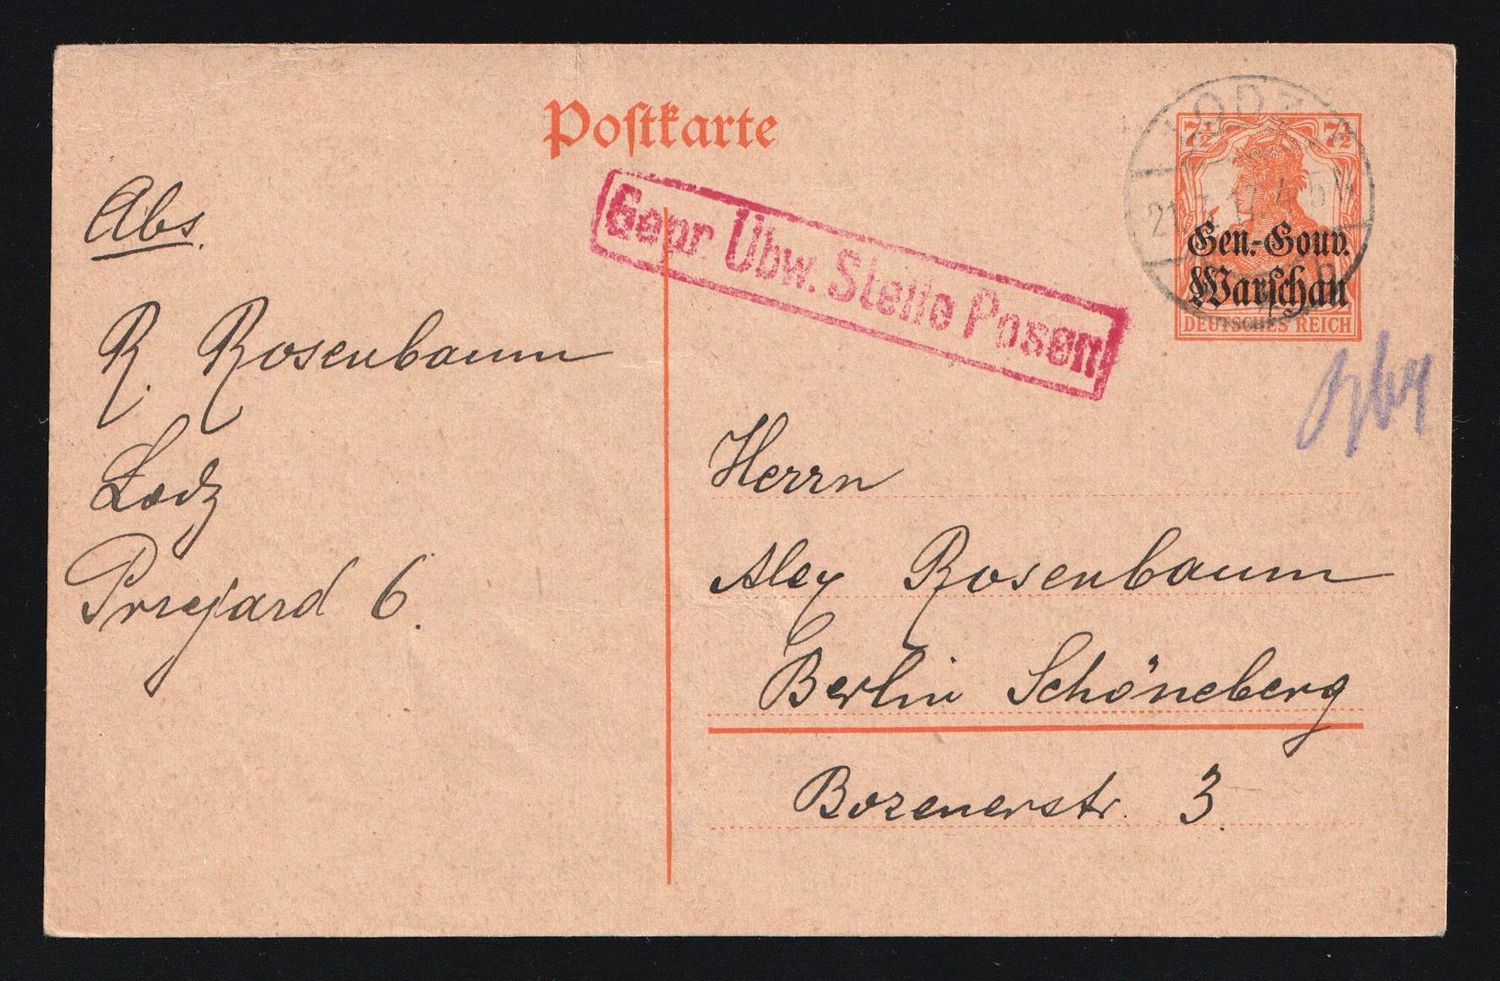 Postkarte
Gepr. Übw. Stelle Posen
LODZ
21.3.17.4-5N
7½ 7½
Gen.-Gouv.
Warschau
DEUTSCHES REICH
Abs.
R. Rosenbaum
Lodz
Przejazd 6.
Herrn
Alex Rosenbaum
Berlin Schöneberg
Bozenerstr. 3.